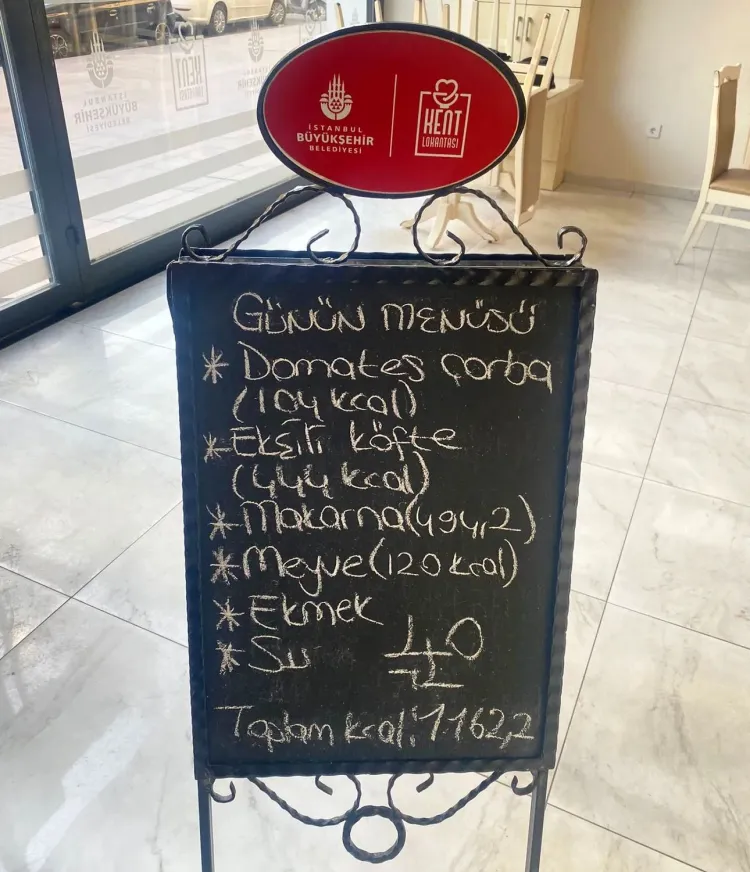 İSTANBUL
BÜYÜKŞEHİR
BELEDİYESİ
KENT
LOKANTASI
İSTANBUL
BÜYÜKŞEHİR
BELEDİYESİ
KENT
LOKANTASI
GÜNÜN MENÜSÜ
* Domates çorba
(104 kcal)
* Ekşili köfte
(444 kcal)
* Makarna (494,2)
* Meyve (120 kcal)
* Ekmek
* Su 40
TL
Toplam kcal: 1162,2